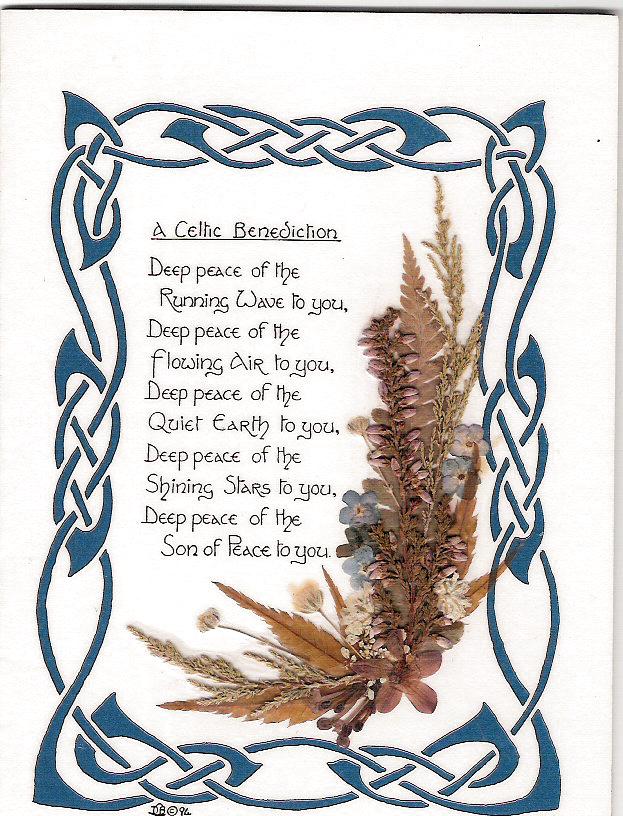 A Celtic Benediction
Deep peace of the
Running Wave to you,
Deep peace of the
Flowing Air to you,
Deep peace of the
Quiet Earth to you,
Deep peace of the
Shining Stars to you,
Deep peace of the
Son of Peace to you.
©94